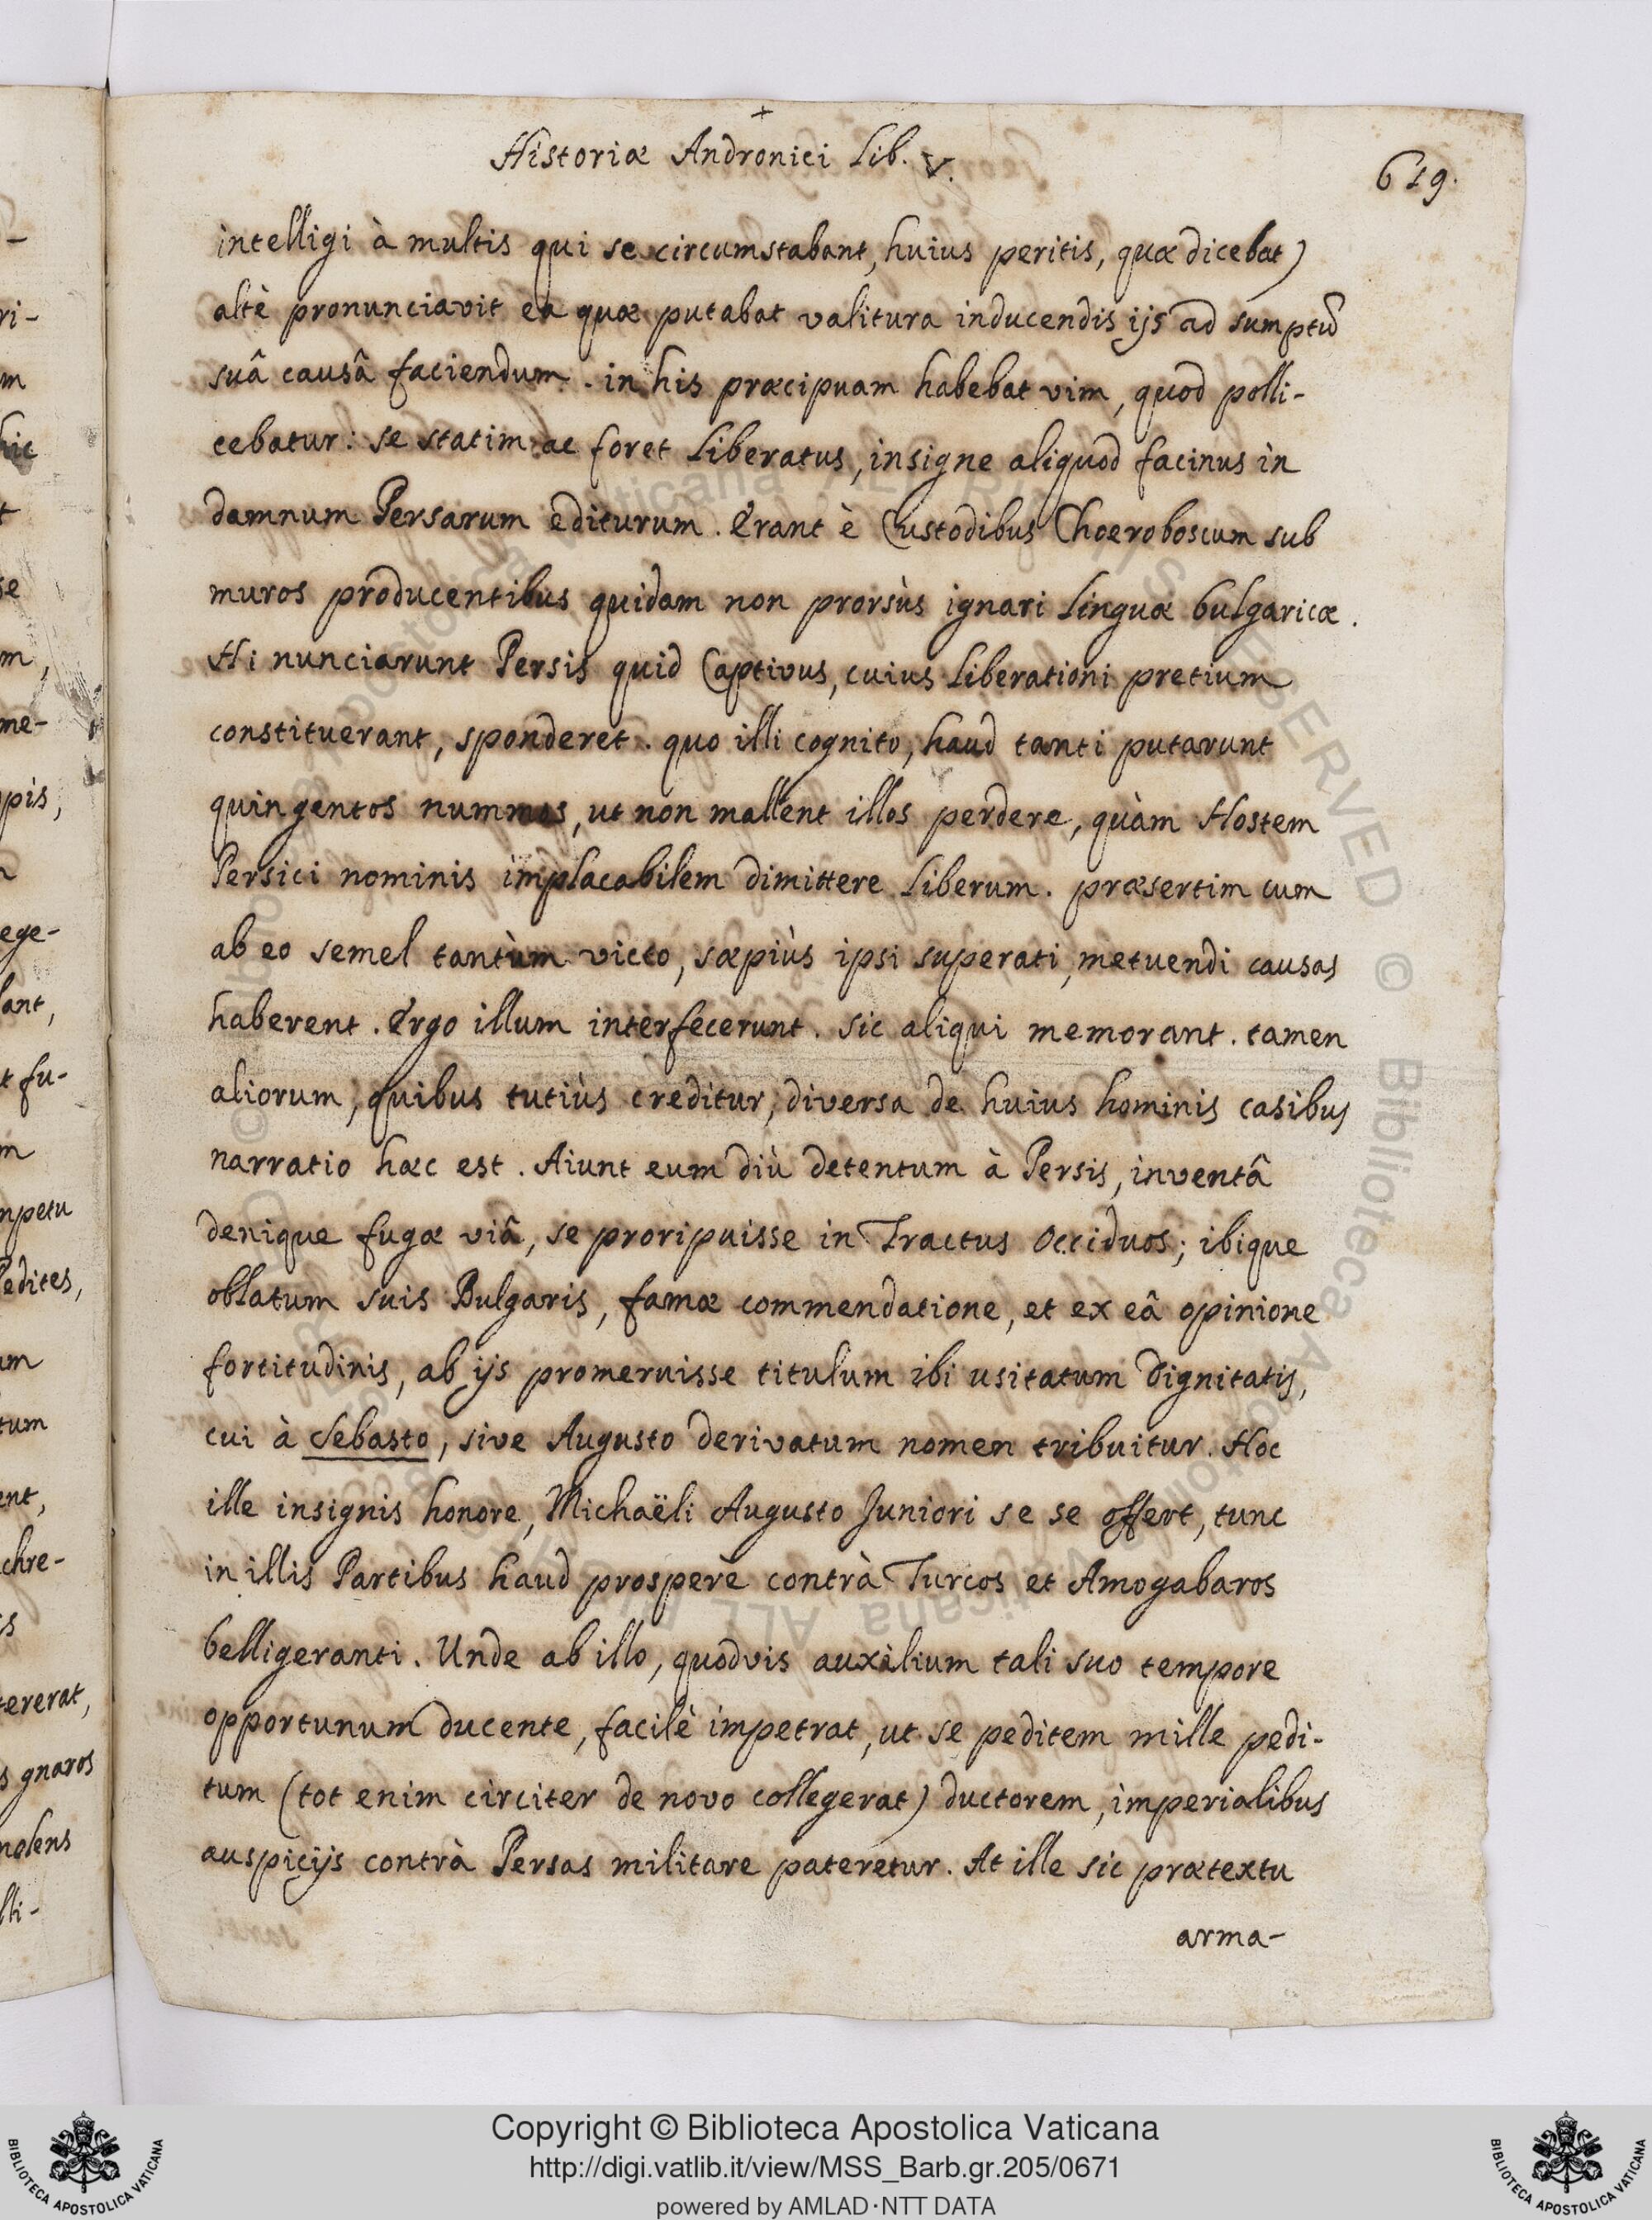 Historiæ Andronici Lib. V.
619.
intelligi à multis qui se circumstabant, huius peritis, quæ dicebat)
altè pronunciavit ea quæ putabat valitura inducendis ijs ad sumptũ
suâ causâ faciendum. in his præcipuam habebat vim, quod polli-
cebatur: se statim ac foret Liberatus, insigne aliquod facinus in
damnum Persarum editurum. Erant è Custodibus Choeroboscum sub
muros producentibus quidam non prorsùs ignari Linguæ bulgaricæ.
Hi nunciarunt Persis quid Captivus, cuius Liberationi pretium
constituerant, sponderet. quo illi cognito, haud tanti putarunt
quingentos nummos, ut non mallent illos perdere, quàm Hostem
Persici nominis implacabilem dimittere Liberum. præsertim cum
ab eo semel tantùm victo, sæpiùs ipsi superati, metuendi causas
haberent. Ergo illum interfecerunt. sic aliqui memorant. tamen
aliorum, quibus tutiùs creditur, diversa de huius hominis casibus
narratio hæc est. Aiunt eum diù detentum à Persis, inventâ
denique fugæ viâ, se proripuisse in Tractus Occiduos; ibique
oblatum suis Bulgaris, famæ commendatione, et ex eâ opinione
fortitudinis, ab ijs promeruisse titulum ibi usitatum dignitatis,
cui à Sebasto, sive Augusto derivatum nomen tribuitur. Hoc
ille insignis honore, Michaëli Augusto Juniori se se offert, tunc
in illis Partibus haud prosperè contrà Turcos et Amogabaros
belligeranti. Unde ab illo, quodvis auxilium tali suo tempore
opportunum ducente, facilè impetrat, ut se peditem mille pedi-
tum (tot enim circiter de novo collegerat) ductorem, imperialibus
auspicijs contrà Persas militare pateretur. At ille sic prætextu
arma-
Copyright © Biblioteca Apostolica Vaticana
http://digi.vatlib.it/view/MSS_Barb.gr.205/0671
powered by AMLAD·NTT DATA
BIBLIOTECA APOSTOLICA VATICANA
BIBLIOTECA APOSTOLICA VATICANA